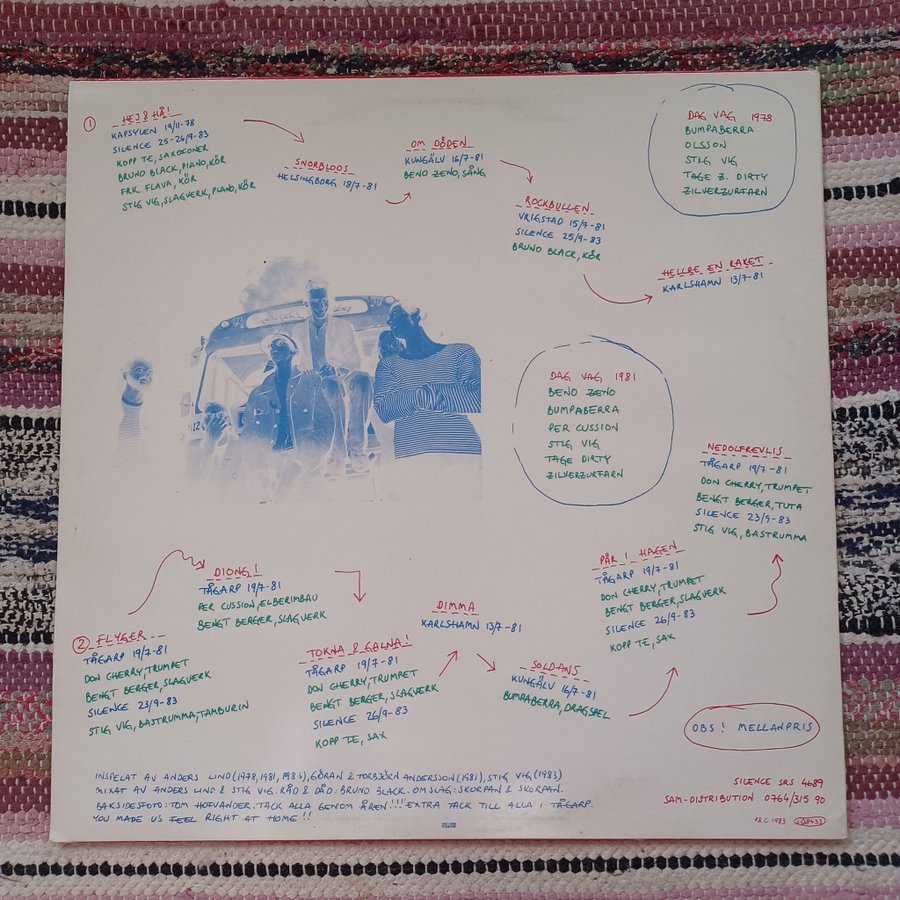 1
HEJ & HÅ!
KAPSYLEN 19/11-78
SILENCE 25-26/9-83
KOPP TE, SAXOFONER
BRUNO BLACK, PIANO, KÖR
FRK FLAVA, KÖR
STIG VIG, SLAGVERK, PIANO, KÖR
SNORBLOOS
HELSINGBORG 18/7-81
OM DÖDEN
KUNGÄLV 16/7-81
BENO ZENO, SÅNG
ROCKBULLEN
VRIGSTAD 15/7-81
SILENCE 25/9-83
BRUNO BLACK, KÖR
HELLRE EN RAKET
KARLSHAMN 13/7-81
DAG VAG 1978
BUMPABERRA
OLSSON
STIG VIG
TAGE Z. DIRTY
ZILVERZURFARN
DAG VAG 1981
BENO ZENO
BUMPABERRA
PER CUSSION
STIG VIG
TAGE DIRTY
ZILVERZURFARN
2 FLYGER
TÅGARP 19/7-81
DON CHERRY, TRUMPET
BENGT BERGER, SLAGVERK
SILENCE 23/9-83
STIG VIG, BASTRUMMA, TAMBURIN
DIONG!
TÅGARP 19/7-81
PER CUSSION, ELBERIMBAU
BENGT BERGER, SLAGVERK
TOKNA & GALNA!
TÅGARP 19/7-81
DON CHERRY, TRUMPET
BENGT BERGER, SLAGVERK
SILENCE 26/9-83
KOPP TE, SAX
DIMMA
KARLSHAMN 13/7-81
SOLDANS
KUNGÄLV 16/7-81
BUMPABERRA, DRAGSPEL
PÅR I HAGEN
TÅGARP 19/7-81
DON CHERRY, TRUMPET
BENGT BERGER, SLAGVERK
SILENCE 26/9-83
KOPP TE, SAX
NEDOLFREVLIS
TÅGARP 19/7-81
DON CHERRY, TRUMPET
BENGT BERGER, TUTA
SILENCE 23/9-83
STIG VIG, BASTRUMMA
OBS! MELLANPRIS
INSPELAT AV ANDERS LIND (1978, 1981, 1983), GÖRAN & TORBJÖRN ANDERSSON (1981), STIG VIG (1983)
MIXAT AV ANDERS LIND & STIG VIG. RÅD & DÅD: BRUNO BLACK. OMSLAG: SKORPAN & SKORPAN.
BAKSIDESFOTO: TOM HOFVANDER. TACK ALLA GENOM ÅREN!!! EXTRA TACK TILL ALLA I TÅGARP.
YOU MADE US FEEL RIGHT AT HOME!!
SILENCE SRS 4689
SAM-DISTRIBUTION 0764/315 90
P & C 1983